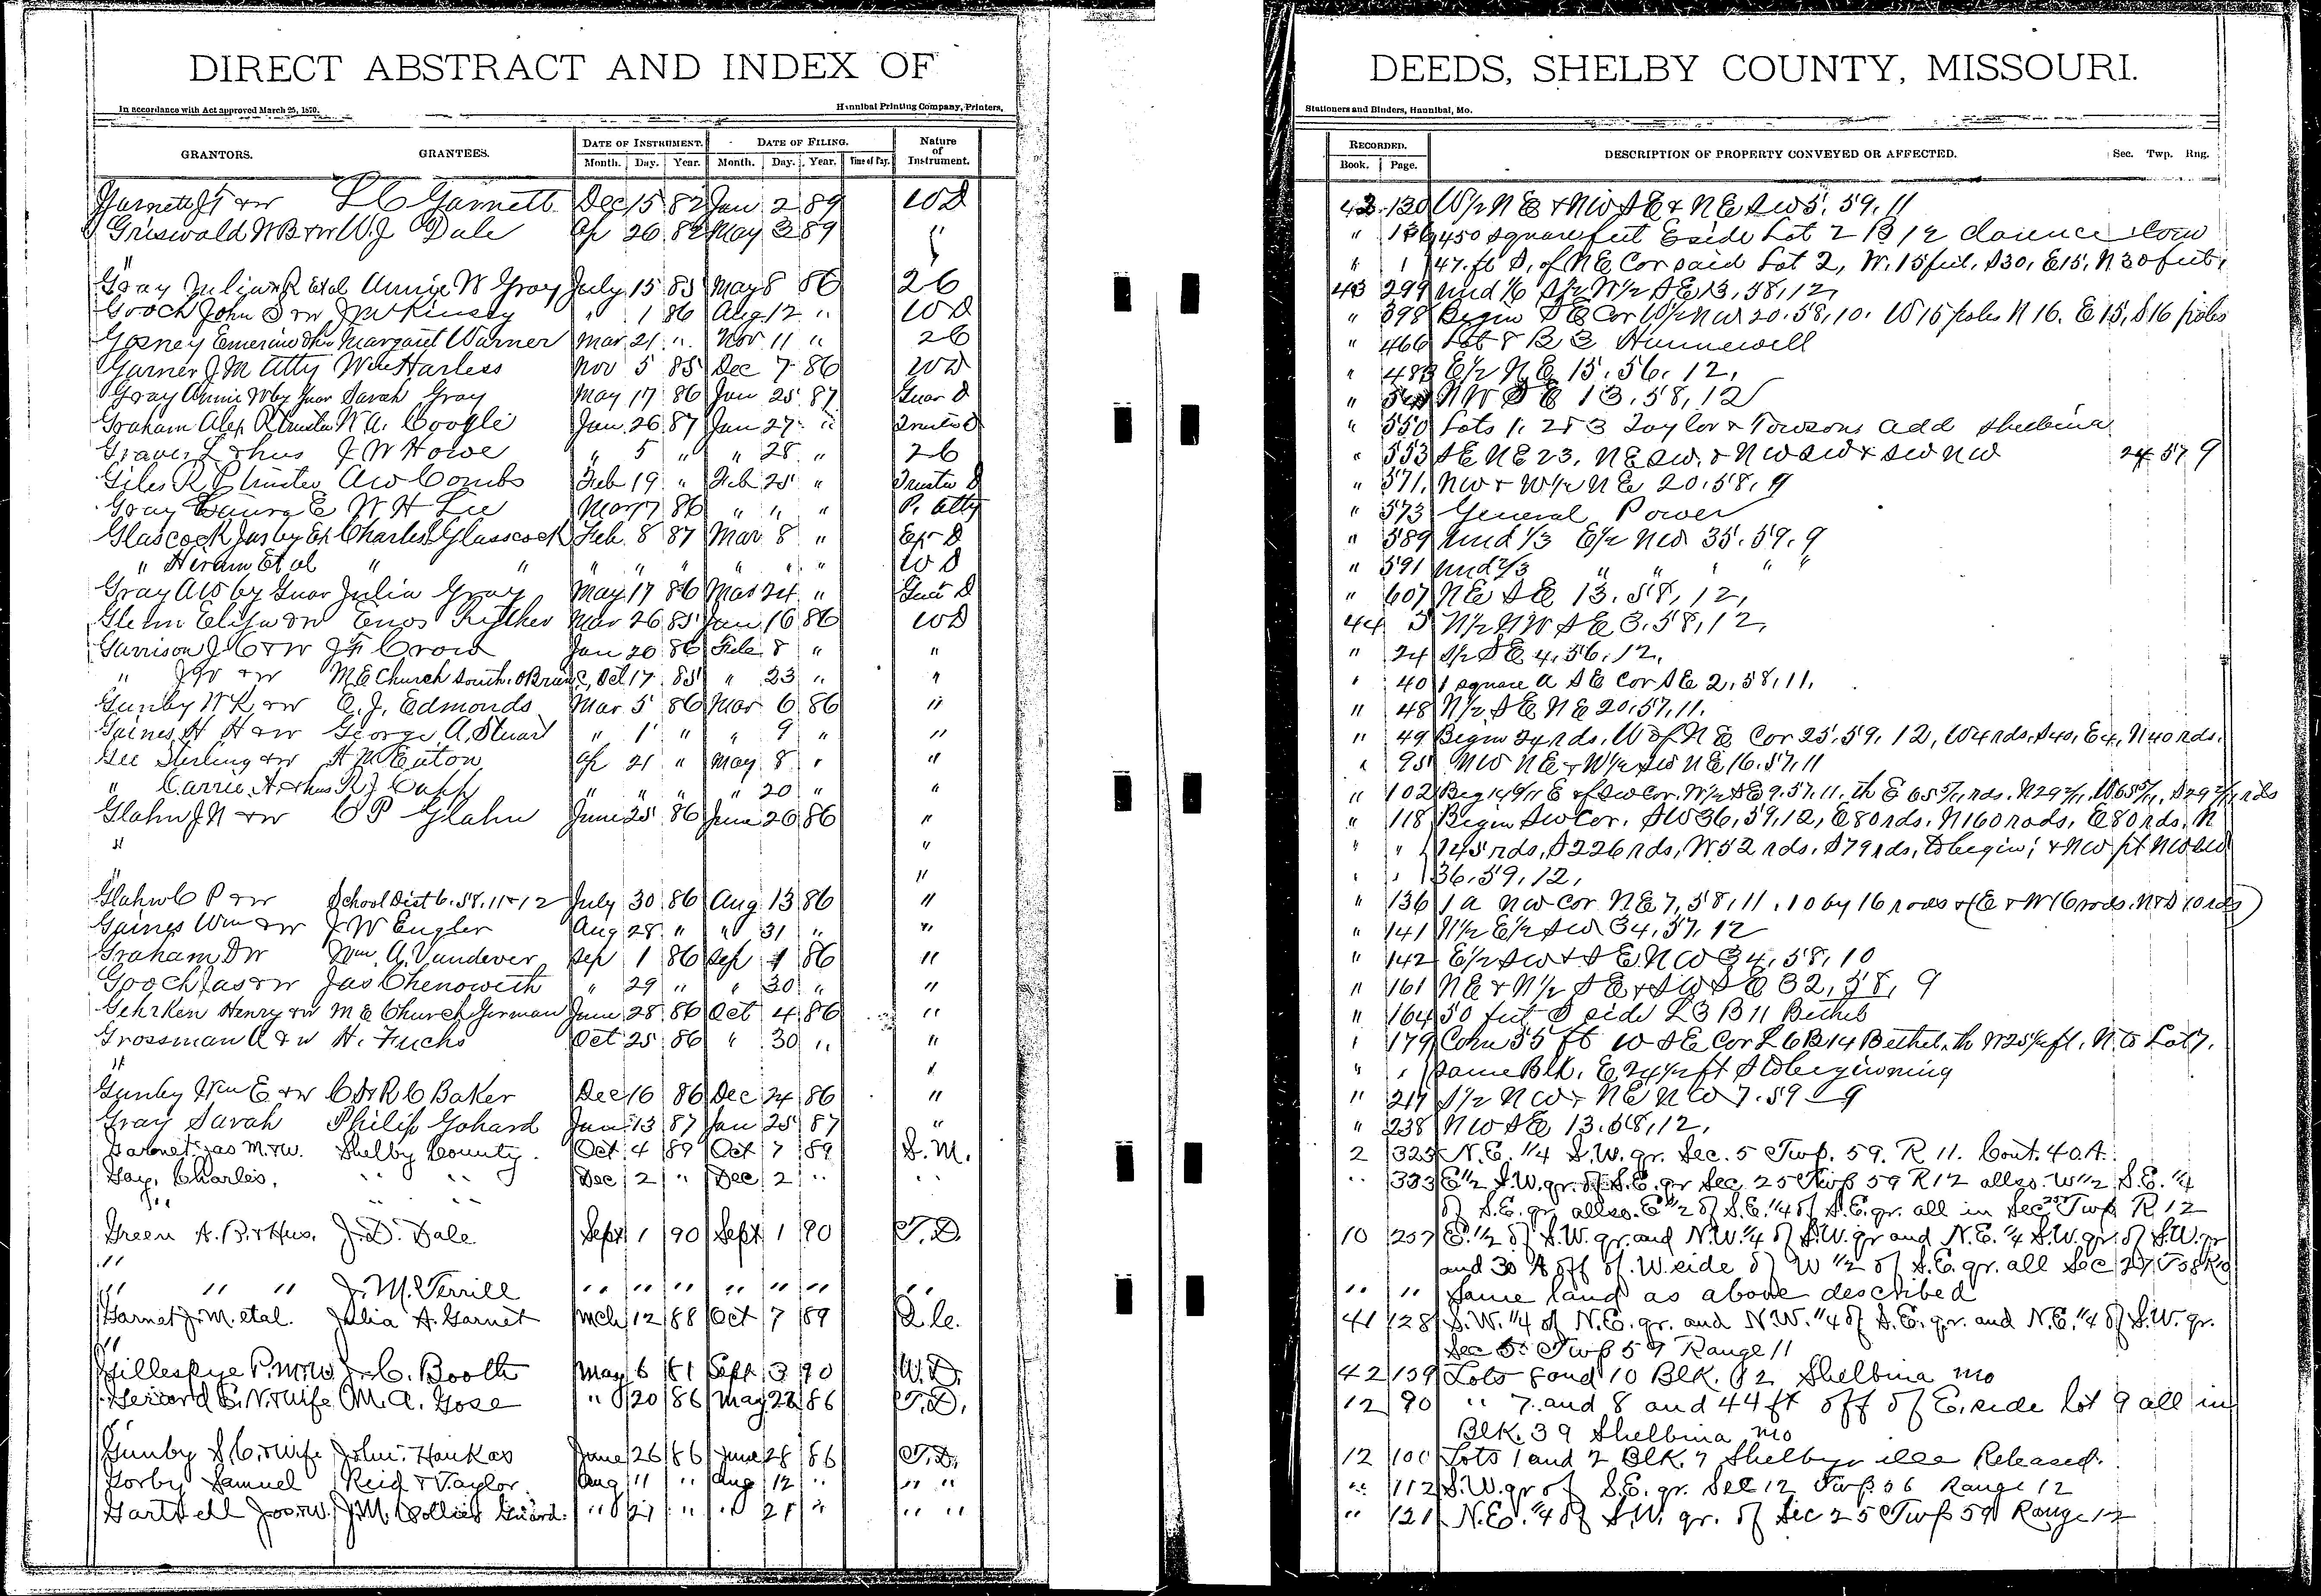 DIRECT ABSTRACT AND INDEX OF
In accordance with Act approved March 25, 1870.
Hannibal Printing Company, Printers,
GRANTORS. GRANTEES. DATE OF INSTRUMENT. DATE OF FILING. Nature of Instrument.
Month. Day. Year. Month. Day. Year. Time of Day.
Garnett J T & w L C Garnett Dec 15 82 Jan 2 89 W D
Griswald W B & w W. J Dale Ap 26 82 May 3 89 "
"
Gray Julian R Et al Annie W Gray July 15 85 May 8 86 2 C
Gooch John S & w J W Kinsey " 1 86 Aug 12 " W D
Gosney Emerine Margaret Warner Mar 21 " Nov 11 " 2 C
Garner J M Atty Wm Harless Nov 5 85 Dec 7 86 W D
Gray Annie W by Guar Sarah Gray May 17 86 Jan 25 87 Guar D
Graham Alex R Trustee N A. Coogle Jan 26 87 Jan 27 " Trustee D
Graves L & hus J W Howe " 5 " " 28 " 2 C
Giles R P Trustee A W Combs Feb 19 " Feb 25 " Trustee D
Gray Laura E W H Lee Mar 17 86 " " " P. Atty
Glascock Jas by Ex Charles Glasscock Feb 8 87 Mar 8 " Exr D
" Hiram Et al " " " " " " " " W D
Gray A W by Guar Julia Gray May 17 86 Mar 24 " Guar D
Glenn Eliza & w Enos Ryther Mar 26 85 Jan 16 86 W D
Garrison J C & w J F Crow Jan 20 86 Feb 8 " "
" J W & w M E Church South. OBrian C. Oct 17 85 " 23 " "
Gunby W K & w E. J. Edmonds Mar 5 86 Mar 6 86 "
Gaines H H & w George A. Stuart " 1 " " 9 " "
Gee Sterling & w H M Eaton Ap 21 " May 8 " "
" Carrie A. & hus R J Capp " " " " 20 " "
Glahn J N & w C P Glahn June 25 86 June 26 86 "
" "
" "
Glahn C P & w School Dist 6. 58. 11 & 12 July 30 86 Aug 13 86 "
Gaines Wm & w J W Engler Aug 28 " " 31 " "
Graham D W Wm. A. Vandever Sep 1 86 Sep 1 86 "
Gooch Jas & w Jas Chenoweth " 29 " " 30 " "
Gehrken Henry & w M E Church German June 28 86 Oct 4 86 "
Grossman A & w H. Fuchs Oct 25 86 " 30 " "
" "
Gunby Wm E & w C & R C Baker Dec 16 86 Dec 24 86 "
Gray Sarah Philip Gohard Jan 13 87 Jan 25 87 "
Garnet Jas M. & w. Shelby County. Oct 4 89 Oct 7 89 S. M.
Gay, Charles, " " Dec 2 " Dec 2 " " "
" " "
Green A. B. & Hus. J. D. Dale Sept 1 90 Sept 1 90 T. D.
"
" " " J. M. Terrill " " " " " " " "
Garnet J. M. etal. Julia A. Garnet Mch 12 88 Oct 7 89 Q. C.
"
Gillespye P. M. & W. J. C. Booth May 6 81 Sept 3 90 W. D.
E. N. & Wife M. A. Gose " 20 86 May 22 86 T. D.
"
Gunby S. C. & Wife John Hawkes June 26 86 June 28 86 T. D.
Gorby Samuel Reid & Taylor Aug 11 " Aug 12 " " "
Gartrell Jos. & W. J. M. Collier Guard. " 21 " " 21 " " "
DEEDS, SHELBY COUNTY, MISSOURI.
Stationers and Binders, Hannibal, Mo.
RECORDED. DESCRIPTION OF PROPERTY CONVEYED OR AFFECTED. Sec. Twp. Rng.
Book. Page.
42 130 W 1/2 N E & N W S E & N E S W 5. 59. 11
" 136 450 square feet E side Lot 2 B 12 Clarence Com
" 1 47. ft S. of N E Cor said Lot 2, W. 15 feet, S 30, E 15, N 30 feet,
43 299 und 1/6 S 1/2 N 1/2 S E 13, 58, 12,
" 398 Begin S E Cor W 1/2 N W 20. 58, 10. W 15 poles N 16. E 15, S 16 poles
" 466 Lot 8 B 3 Hunnewell
" 483 E 1/2 N E 15. 56. 12,
" N W S E 13. 58, 12
" 550 Lots 1. 2 & 3 Taylor & Towsons add Shelbina
" 553 S E N E 23, N E S W. & N W S W & S W N W 24 57 9
" 571 N W & W 1/2 N E 20. 58. 9
" 573 General Power
" 589 Und 1/3 E 1/2 N W 35. 59. 9
" 591 und 2/3 " " " " "
" 607 N E S E 13. 58, 12,
44 5 N 1/2 N W S E 3. 58, 12,
" 24 S 1/2 S E 4. 56. 12,
" 40 1 square a S E Cor S E 2, 58, 11,
" 48 N 1/2 S E N E 20, 57, 11.
" 49 Begin 24 rds, W of N E Cor 25. 59. 12, W 4 rds, S 40, E 4, N 40 rds.
" 95 N W N E & W 1/2 S W N E 16. 57, 11
" 102 Beg E of S W Cor. W 1/2 S E 9. 57. 11, th E 65 5/11 rds. N 29 2/11, W 65 5/11, S 29 2/11 rds
" 118 Begin S W Cor. S W 36, 59, 12, E 80 rds. N 160 rods, E 80 rds. N
" " 145 rds, S 226 rds, W 52 rds. S 79 rds, to begin; & N W pt N W S W
" " 36. 59. 12,
" 136 1 a N W Cor N E 7, 58, 11. 10 by 16 rods (E & W 16 rods. N & S 10 rds)
" 141 N 1/2 E 1/2 S W 34, 57, 12
" 142 E 1/2 S W & S E N W 34, 58, 10
" 161 N E & N 1/2 S E & S W S E 32, 58, 9
" 164 50 feet S side L 3 B 11 Bethel
" 179 Com 55 ft W S E Cor L 6 B 14 Bethel. th W 25 1/2 ft. N to Lot 7.
" " same Blk. E 24 1/2 ft S to beginning
" 217 S 1/2 N W & N E N W 7. 59 9
" 238 N W S E 13. 58, 12.
2 323 N. E. 1/4 S. W. qr. Sec. 5 Twp. 59. R 11. Cont. 40 A.
" 333 E 1/2 S. W. qr. of S. E. qr Sec 25 Twp 59 R 12 allso. W 1/2 S. E. 1/4
of S. E. qr. allso. E 1/2 of S. E. 1/4 of S. E. qr. all in Sec 25 Twp R 12
10 257 E. 1/2 of S. W. qr. and N. W. 1/4 of S. W. qr and N. E. 1/4 S. W. qr. of S. W. qr
and 30 A off of. W side of W 1/2 of S. E. qr. all Sec 27 T 58 R 10
" " Same land as above described
41 128 S. W. 1/4 of N. E. qr. and N. W. 1/4 of S. E. qr. and N. E. 1/4 of S. W. qr.
Sec 5 Twp 59 Range 11
42 159 Lots 8 and 10 Blk. 12 Shelbina Mo
12 90 " 7. and 8 and 44 ft off of E. side lot 9 all in
Blk. 39 Shelbina Mo
12 100 Lots 1 and 2 Blk. 7 Shelbyville Released.
" 112 S. W. qr of S. E. qr. Sec 12 Twp. 56 Range 12
" 121 N. E. 1/4 of S. W. qr. of Sec 25 Twp 59 Range 12